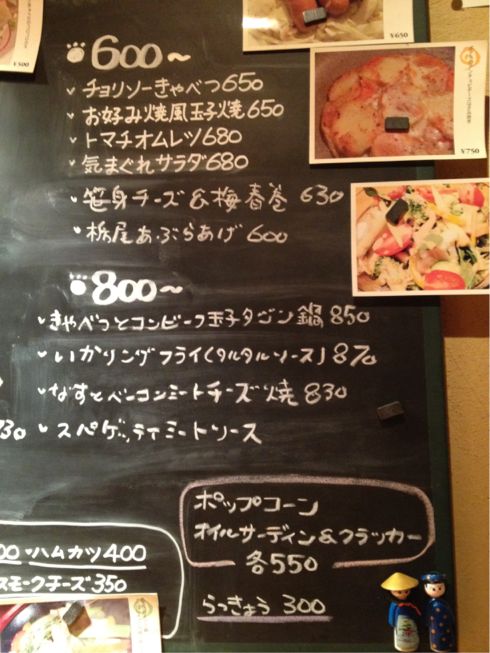 ¥500
¥650
600〜
チョリソーきゃべつ650
お好み焼風玉子焼650
トマチオムレツ680
気まぐれサラダ680
笹身チーズ&梅春巻 630
栃尾あぶらあげ 600
¥750
800〜
きゃべつとコンビーフ玉子タジン鍋 850
いかリングフライ(タルタルソース)870
なすとベーコンミートチーズ焼830
30
スパゲッティミートソース
ポップコーン
オイルサーディン&クラッカー
各550
00・ハムカツ400
スモークチーズ350
らっきょう 300